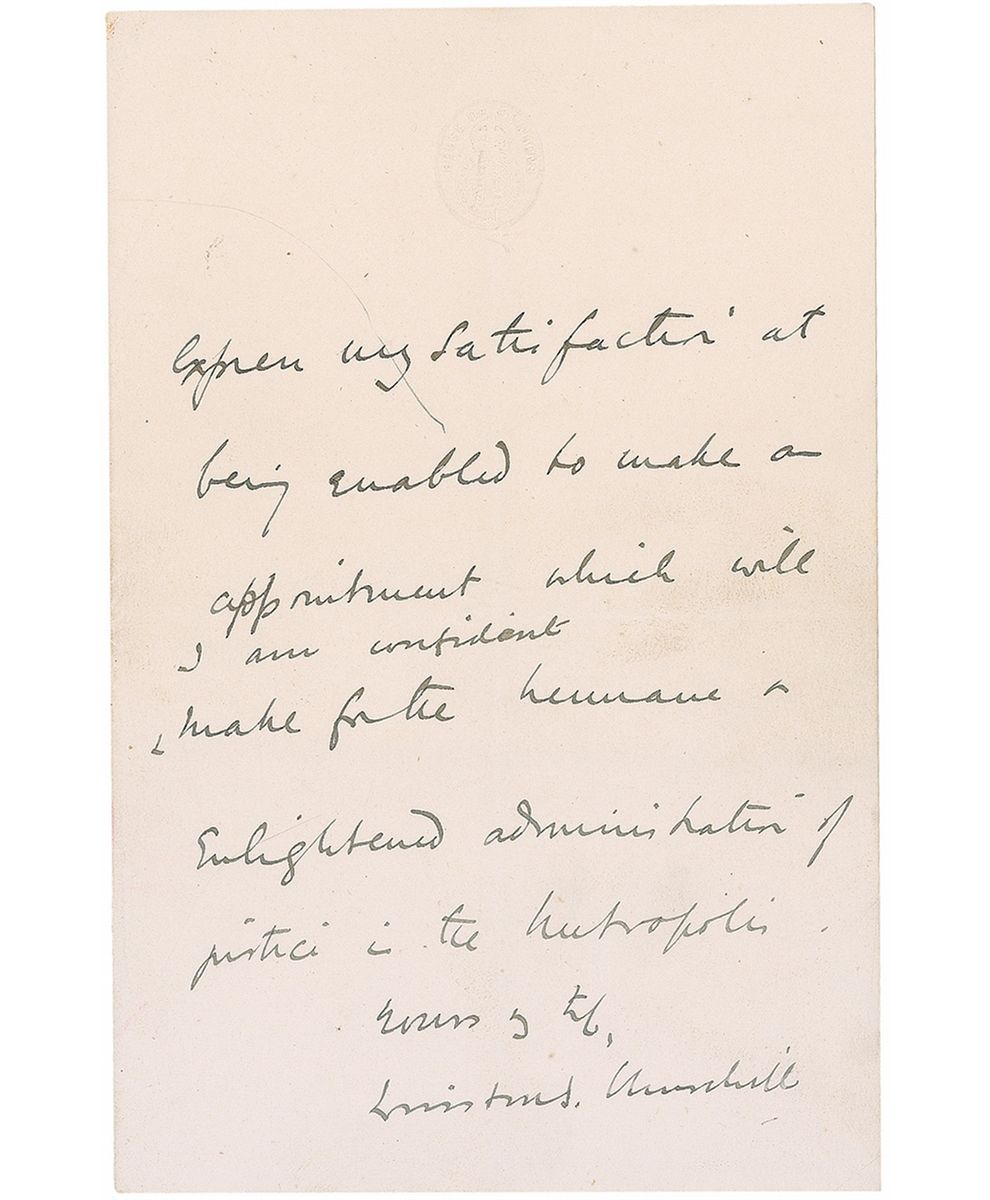 express my satisfaction at
being enabled to make an
appointment which will
I am confident
make for the humane &
enlightened administration of
justice in the Metropolis.
Yours v try,
Winston S. Churchill